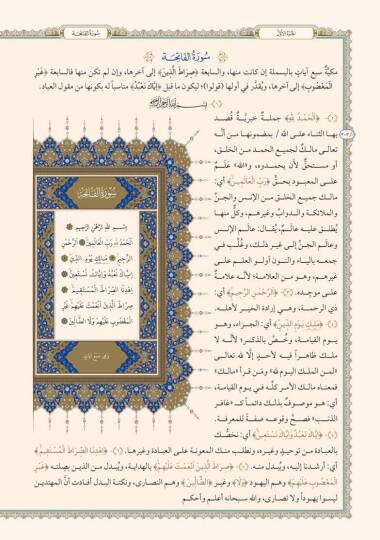 الجزء الأول
سورة الفاتحة
سُورَةُ الفَاتِحَة
مكيّة سبع آيات بالبسملة إن كانت منها، والسابعة ﴿صِرَاطَ الَّذِينَ﴾ إلى آخرها، وإن لم تكن منها فالسابعة ﴿غَيْرِ
المَغْضُوبِ﴾ إلى آخرها، ويُقدَّر في أولها (قولوا)؛ ليكون ما قبل ﴿إِيَّاكَ نَعْبُدُ﴾ مناسباً له بكونها من مقول العباد.
بِسْمِ اللَّهِ الرَّحْمَنِ الرَّحِيمِ
﴿الْحَمْدُ لِلَّهِ﴾ جملة خبريَّة قُصد
بها الثناء على الله / بمضمونها من أنَّه
تعالى مالكٌ لجميع الحمد من الخلق،
أو مستحقٌّ لأن يحمدوه، و«الله» عَلَمٌ
على المعبود بحقٍّ ﴿رَبِّ الْعَالَمِينَ﴾ أي:
مالك جميع الخلق من الإنس والجنِّ
والملائكة والدوابِّ وغيرهم، وكلٌّ منها
يُطلق عليه عالَمٌ، يُقال: عالَم الإنس
وعالَم الجنِّ إلى غير ذلك، وغُلِّب في
جمعه بالياء والنون أولو العلم على
غيرهم، وهو من العلامة؛ لأنَّه علامةٌ
على موجده. ﴿الرَّحْمَنِ الرَّحِيمِ﴾ أي:
ذي الرحمة، وهي إرادة الخير لأهله.
﴿مَلِكِ يَوْمِ الدِّينِ﴾ أي: الجزاء، وهو
يوم القيامة، وخُصَّ بالذكر؛ لأنَّه لا
ملك ظاهراً فيه لأحدٍ إلَّا لله تعالى
«لمن الملك اليوم لله» ومَن قرأ «مالك»
فمعناه مالك الأمر كلِّه في يوم القيامة،
أي: هو موصوفٌ بذلك دائماً كـ«غافر
الذنب» فصحَّ وقوعه صفةً للمعرفة.
﴿إِيَّاكَ نَعْبُدُ وَإِيَّاكَ نَسْتَعِينُ﴾ أي: نخصُّك
بالعبادة من توحيدٍ وغيره، ونطلب منك المعونة على العبادة وغيرها. ﴿اهْدِنَا الصِّرَاطَ الْمُسْتَقِيمَ﴾
أي: أرشدنا إليه، ويُبدل منه. ﴿صِرَاطَ الَّذِينَ أَنْعَمْتَ عَلَيْهِمْ﴾ بالهداية، ويُبدل من الذين بصلته ﴿غَيْرِ
الْمَغْضُوبِ عَلَيْهِمْ﴾ وهم اليهود ﴿وَلَا﴾ وغير ﴿الضَّالِّينَ﴾ وهم النصارى، ونكتة البدل أفادت أنَّ المهتدين
ليسوا يهوداً ولا نصارى، والله سبحانه أعلم وأحكم
سُورَةُ الفَاتِحَة
بِسْمِ اللَّهِ الرَّحْمَنِ الرَّحِيمِ
الْحَمْدُ لِلَّهِ رَبِّ الْعَالَمِينَ الرَّحْمَنِ
الرَّحِيمِ مَلِكِ يَوْمِ الدِّينِ
إِيَّاكَ نَعْبُدُ وَإِيَّاكَ نَسْتَعِينُ
اهْدِنَا الصِّرَاطَ الْمُسْتَقِيمَ
صِرَاطَ الَّذِينَ أَنْعَمْتَ عَلَيْهِمْ غَيْرِ
الْمَغْضُوبِ عَلَيْهِمْ وَلَا الضَّالِّينَ